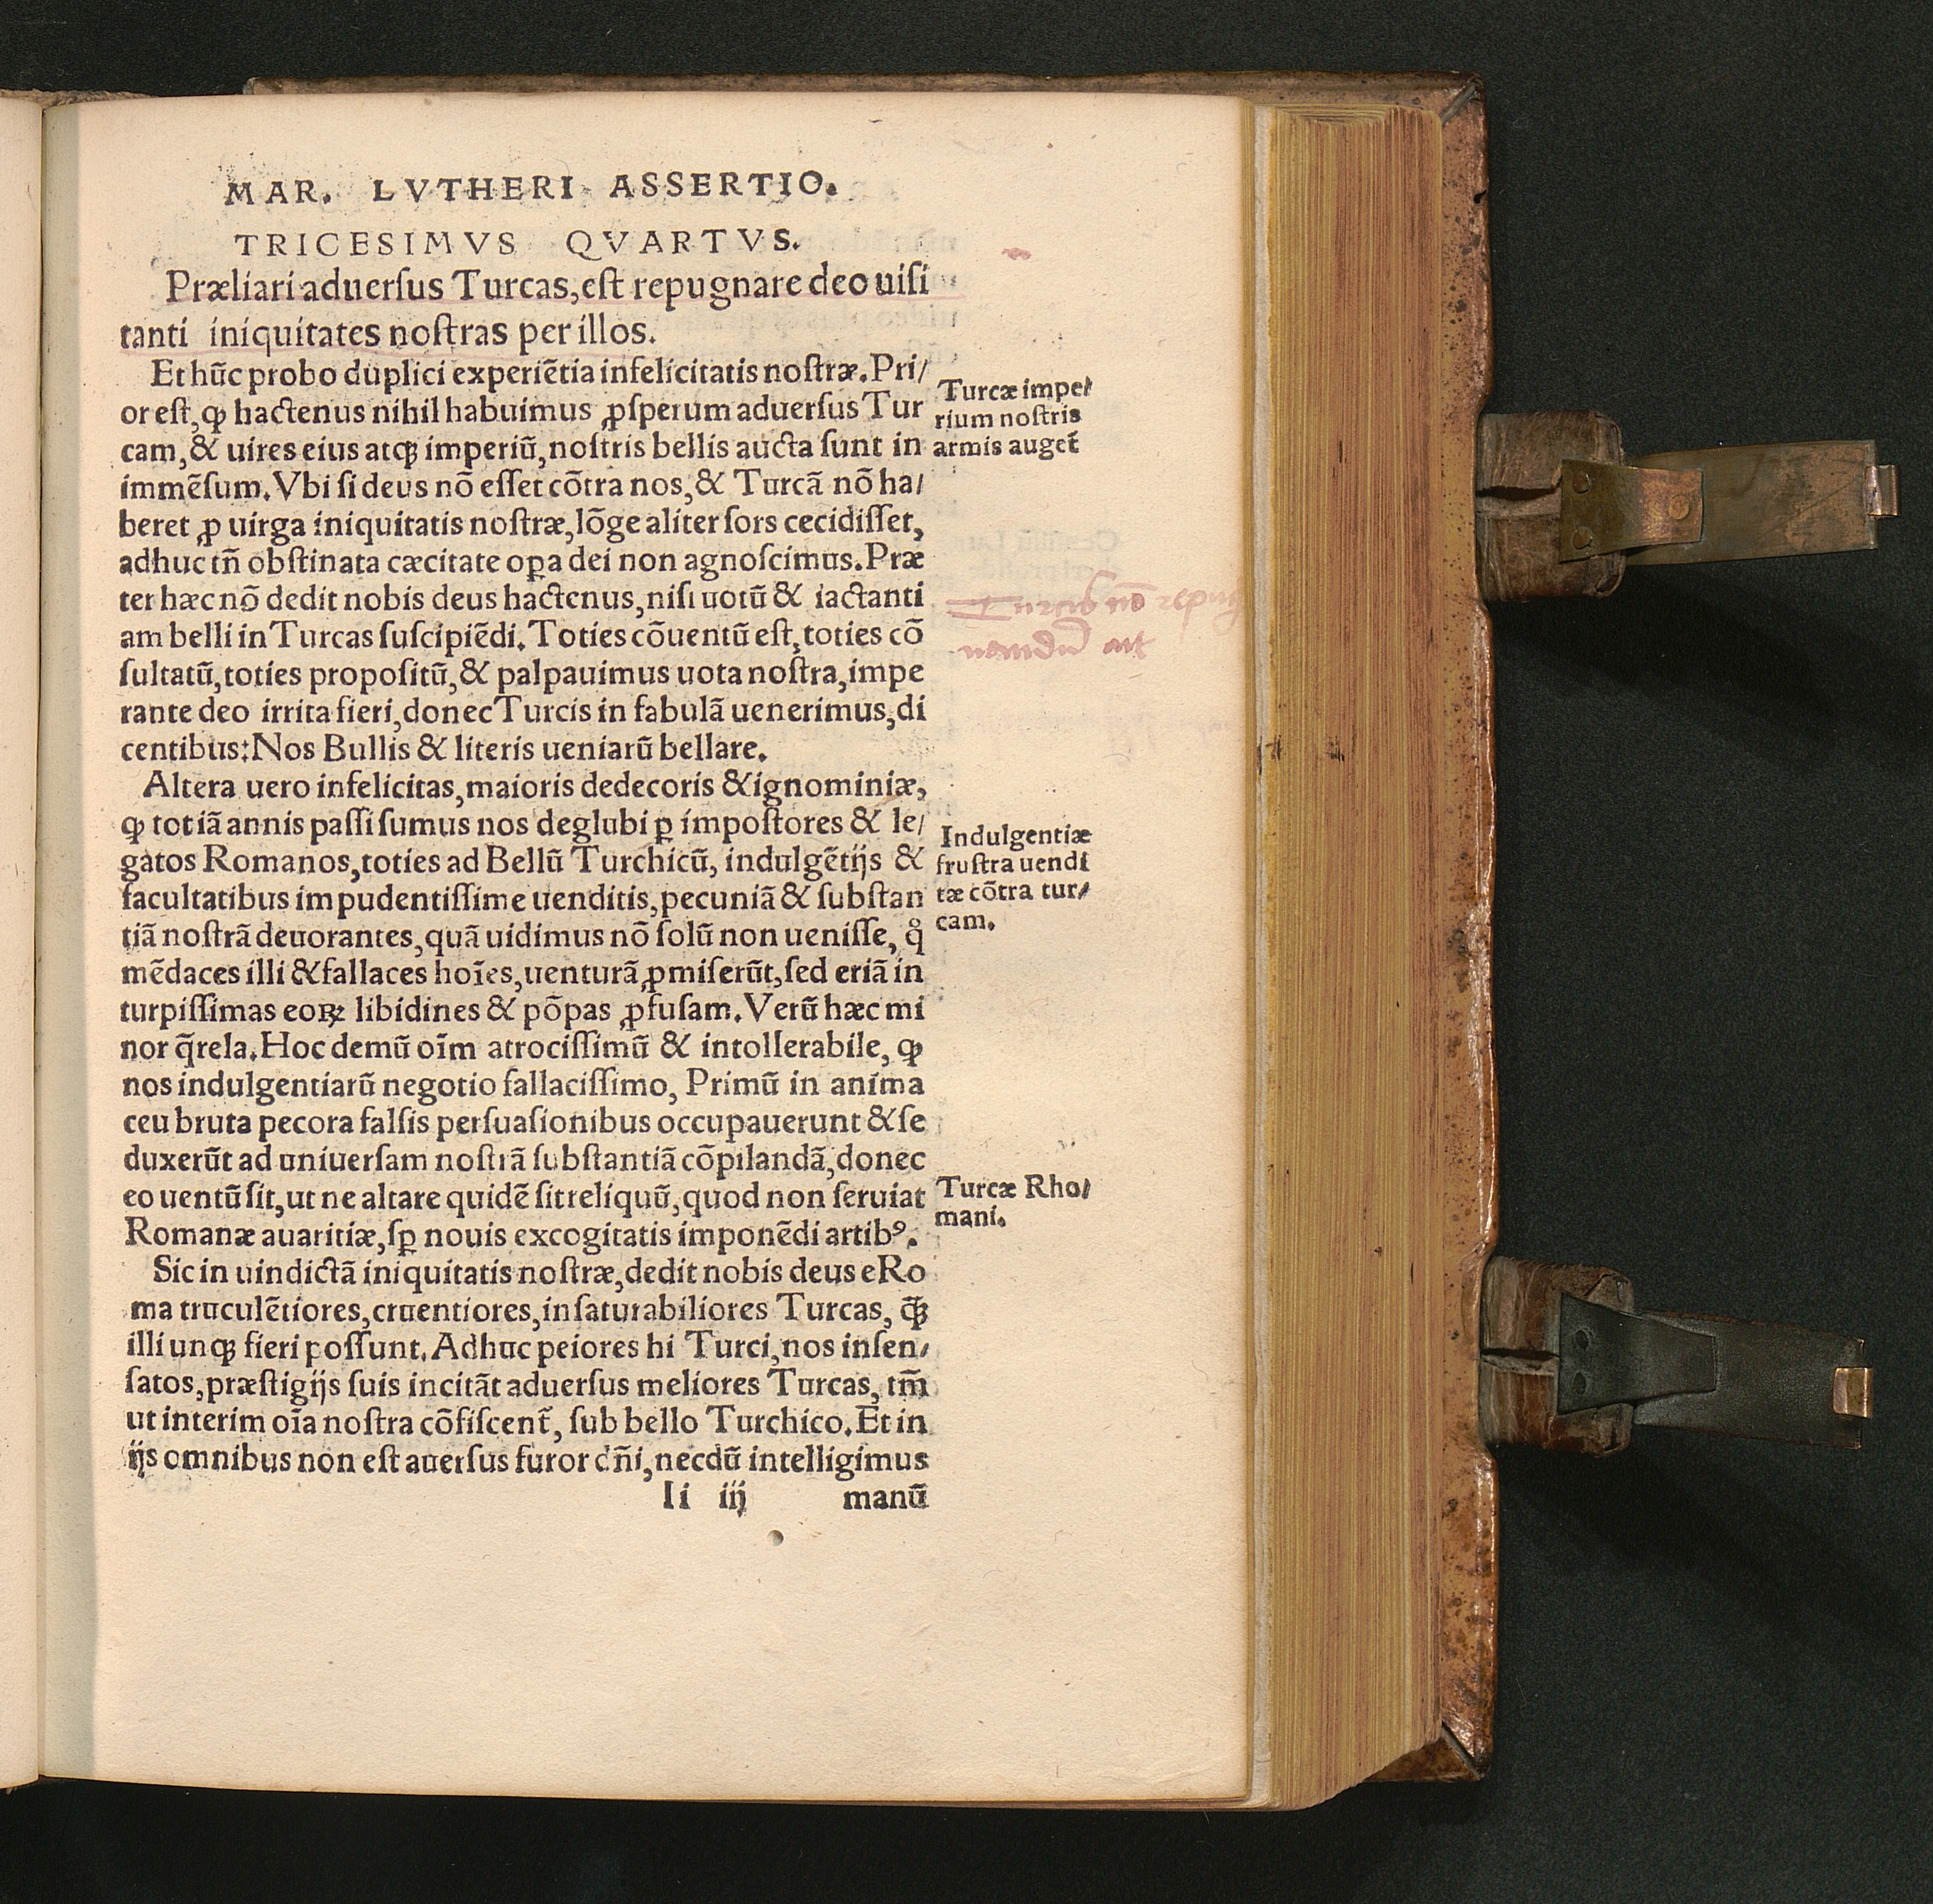 MAR. LVTHERI ASSERTIO.
TRICESIMVS QVARTVS.
Præliari aduersus Turcas, est repugnare deo uisi
tanti iniquitates nostras per illos.
Et hūc probo duplici experiētia infelicitatis nostræ. Pri/
or est, ꝙ hactenus nihil habuimus ꝓsperum aduersus Tur
cam, & uires eius atqꝫ imperiū, nostris bellis aucta sunt in
immēsum. Vbi si deus nō esset cōtra nos, & Turcā nō ha/
beret ꝓ uirga iniquitatis nostræ, lōge aliter sors cecidisset,
adhuc tñ obstinata cæcitate oꝑa dei non agnoscimus. Præ
ter hæc nō dedit nobis deus hactenus, nisi uotū & iactanti
am belli in Turcas suscipiēdi. Toties cōuentū est, toties cō
sultatū, toties propositū, & palpauimus uota nostra, impe
rante deo irrita fieri, donec Turcis in fabulā uenerimus, di
centibus: Nos Bullis & literis ueniarū bellare.
Altera uero infelicitas, maioris dedecoris & ignominiæ,
ꝙ tot iā annis passi sumus nos deglubi ꝑ impostores & le/
gatos Romanos, toties ad Bellū Turchicū, indulgētijs &
facultatibus impudentissime uenditis, pecuniā & substan
tiā nostrā deuorantes, quā uidimus nō solū non uenisse, qͦ
mēdaces illi & fallaces hoīes, venturā ꝓmiserūt, sed etiā in
turpissimas eoꝝ libidines & pōpas ꝓfusam. Verū hæc mi
nor q̄rela. Hoc demū oīm atrocissimū & intollerabile, ꝙ
nos indulgentiarū negotio fallacissimo, Primū in anima
ceu bruta pecora falsis persuasionibus occupauerunt & se
duxerūt ad uniuersam nostrā substantiā cōpilandā, donec
eo uentū sit, ut ne altare quidē sit reliquū, quod non seruiat
Romanæ auaritiæ, sꝑ nouis excogitatis imponēdi artibꝰ.
Sic in uindictā iniquitatis nostræ, dedit nobis deus e Ro
ma truculētiores, cruentiores, insaturabiliores Turcas, q̄ꝫ
illi unqꝫ fieri possunt. Adhuc peiores hi Turci, nos insen/
satos, præstigijs suis incitāt aduersus meliores Turcas, tm̄
ut interim oīa nostra cōfiscent̄, sub bello Turchico. Et in
ijs omnibus non est auersus furor dñi, necdū intelligimus
Ii iij manū
Turcæ impe/
rium nostris
armis auget̄
Turcis nō repug
nandū ait
Indulgentiæ
frustra uendi
tæ cōtra tur/
cam.
Turcæ Rho/
mani.